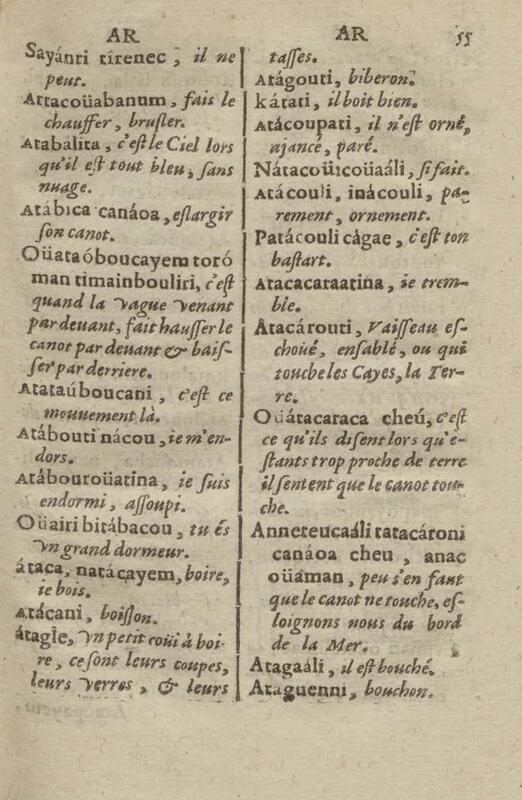 AR
AR
55
Sayánti tírenec, il ne
peut.
Attacoüabanum, fais le
chauffer, brusler.
Atabálita, c'est le Ciel lors
qu'il est tout bleu, sans
nuage.
Atábica canáoa, eslargir
son canot.
Oüataóboucayem toró
man timainbouliri, c'est
quand la vague venant
par deuant, fait hausser le
canot par deuant & bais-
ser par derriere.
Atataúboucani, c'est ce
mouuement là.
Atábouti nácou, ie m'en-
dors.
Atábouroüatina, ie suis
endormi, assoupi.
Oüairi bitábacou, tu és
vn grand dormeur.
átaca, natácayem, boire,
ie bois.
Atácani, boisson.
átagle, vn petit coüi à boi-
re, ce sont leurs coupes,
leurs verres, & leurs
tasses.
Atágouti, biberon.
kátati, il boit bien.
Atácoupati, il n'est orné,
ajancé, paré.
Nátacoüicoüaáli, si fait.
Atácouli, inácouli, pa-
rement, ornement.
Patácouli cágae, c'est ton
bastart.
Atacacaraatina, ie trem-
ble.
Atacárouti, Vaisseau es-
choüé, ensablé, ou qui
touche les Cayes, la Ter-
re.
Oüátacaraca cheú, c'est
ce qu'ils disent lors qu'e-
stants trop proche de terre
il sentent que le canot tou-
che.
Anneteucaáli tatacároni
canáoa cheu, anac
oüaman, peu s'en faut
que le canot ne touche, es-
loignons nous du bord
de la Mer.
Atagaáli, il est bouché.
Ataguenni, bouchon.